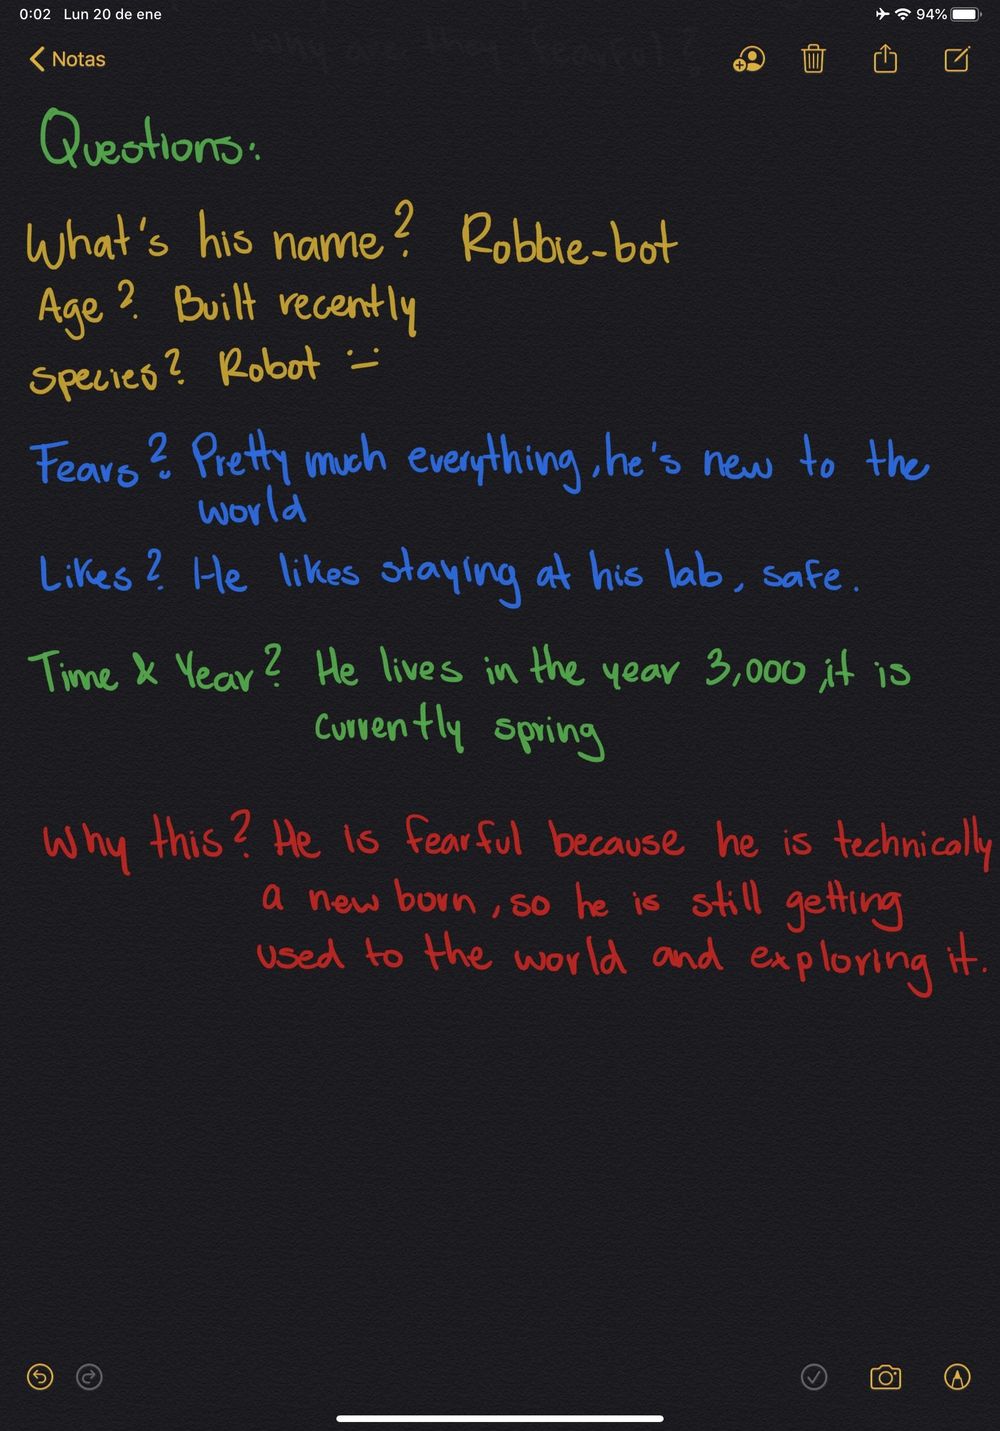 0:02 Lun 20 de ene 94%
Notas
Questions:
What's his name? Robbie-bot
Age? Built recently
species? Robot :-
Fears? Pretty much everything, he's new to the
world
Likes? He likes staying at his lab, safe.
Time & Year? He lives in the year 3,000, it is
currently spring
Why this? He is fearful because he is technically
a new born, so he is still getting
used to the world and exploring it.